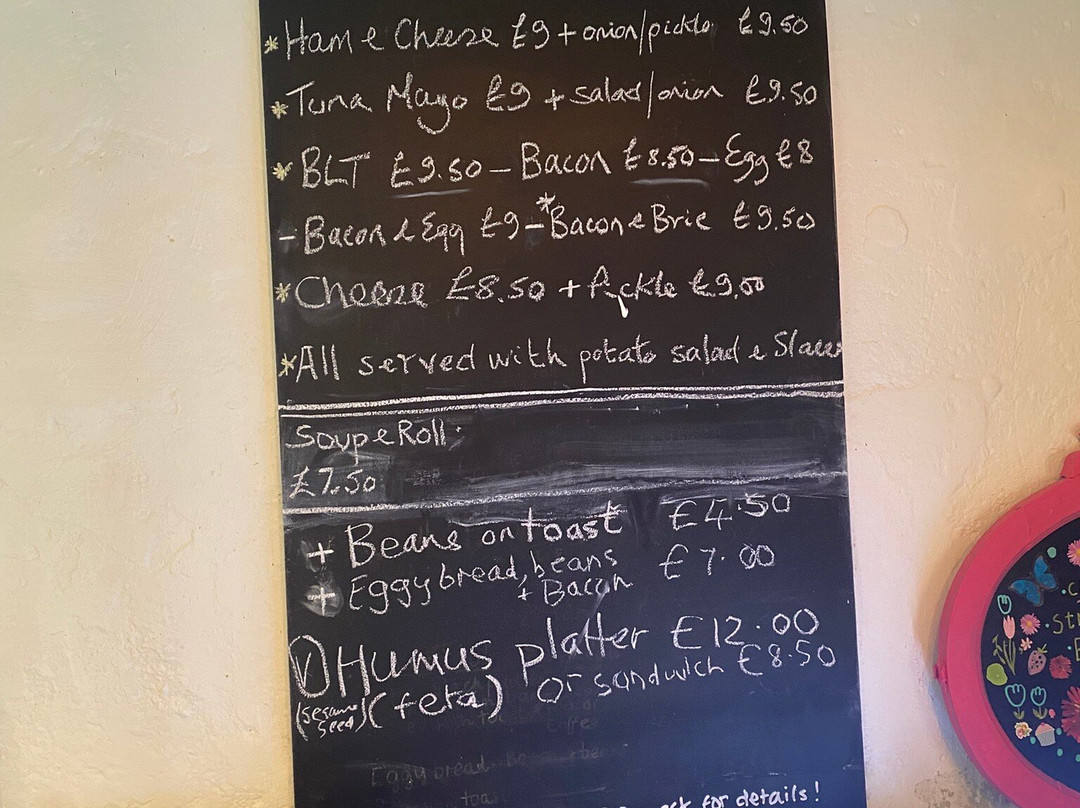 *Ham & Cheese £9 + onion/pickle £9.50
*Tuna Mayo £9 + salad/onion £9.50
*BLT £9.50 – Bacon £8.50 – Egg £8
- Bacon & Egg £9 – *Bacon & Brie £9.50
*Cheese £8.50 + Pickle £9.00
*All served with potato salad & Slaw
Soup & Roll
£7.50
+ Beans on toast £4.50
+ Eggy bread, beans £7.00
+ Bacon
(V) Humus platter £12.00
(sesame seed) (feta) or sandwich £8.50
Eggy bread
for details!